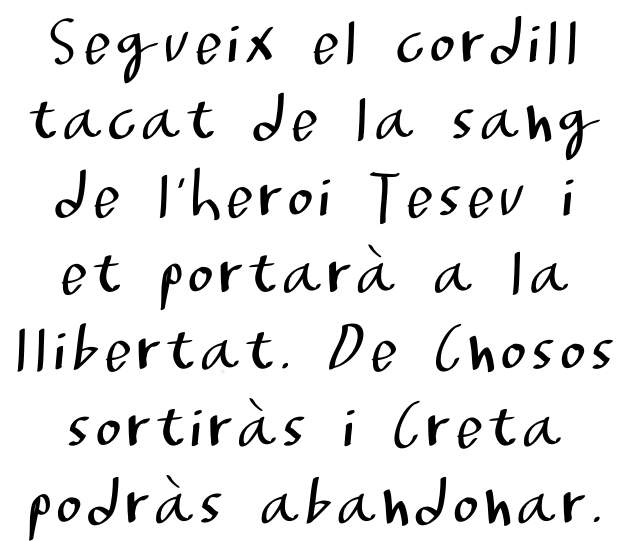 Segueix el cordill
tacat de la sang
de l'heroi Teseu i
et portarà a la
llibertat. De Chosos
sortiràs i Creta
podràs abandonar.